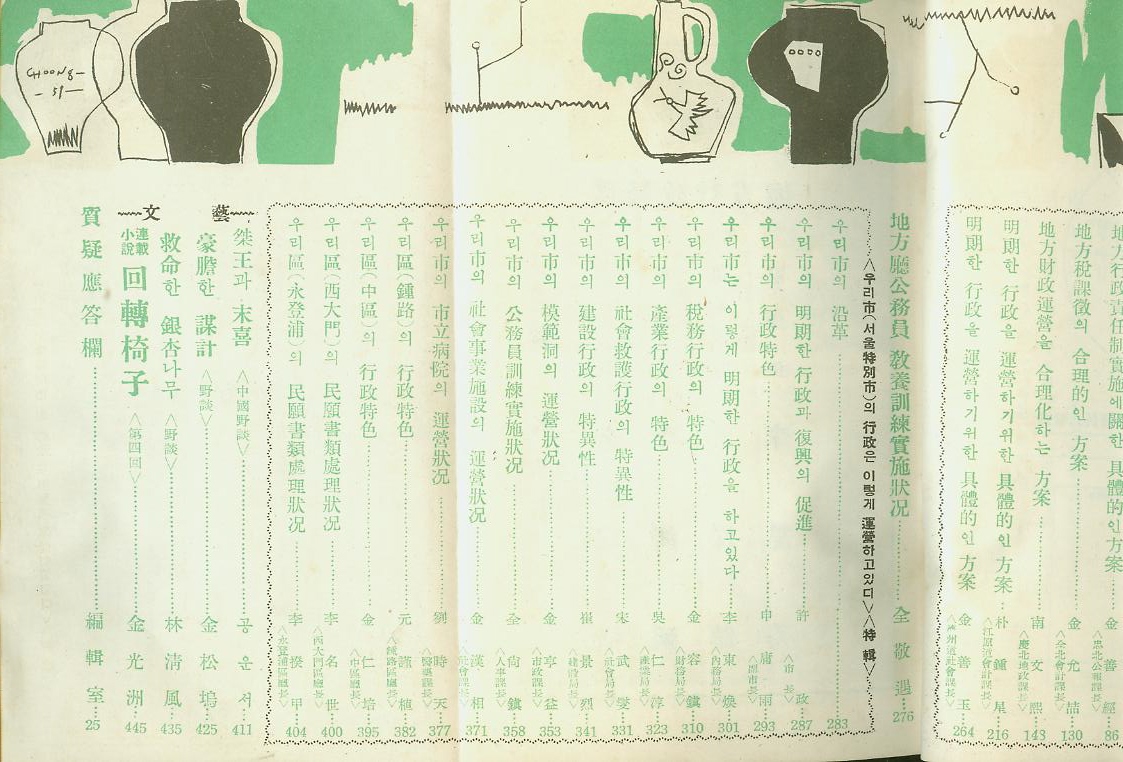 CHOONG—
—51—
地方行政責任制實施에關한 具體的인方案 金善經 86
地方稅課徵의 合理的인 方案 金允喆 130
地方財政運營을 合理化하는 方案 南文熙 143
〈慶北地政課長〉
明朗한 行政을 運營하기위한 具體的인 方案 朴鍾星 216
〈江原道會計課長〉
明朗한 行政을 運營하기위한 具體的인 方案 金善玉 264
地方廳公務員 敎養訓練實施狀况 全敬遇 276
〈우리市(서울特別市)의 行政은 이렇게 運營하고있다〉〈特輯〉
우리市의 沿革 283
우리市의 明朗한 行政과 復興의 促進 許政 287
〈市長〉
우리市의 行政特色 申庸雨 293
〈副市長〉
우리市는 이렇게 明朗한 行政을 하고있다 李東煥 301
〈內務局長〉
우리市의 稅務行政의 特色 金容鎭 310
〈財務局長〉
우리市의 產業行政의 特色 吳仁淳 323
〈產業局長〉
우리市의 社會救護行政의 特異性 宋武燮 331
〈社會局長〉
우리市의 建設行政의 特異性 崔景烈 341
〈建設局長〉
우리市의 模範洞의 運營狀况 金亨益 353
〈市政課長〉
우리市의 公務員訓練實施狀况 全尙鎭 358
〈人事課長〉
우리市의 社會事業施設의 運營狀况 金漢相 371
〈社會課長〉
우리市의 市立病院의 運營狀况 劉時天 377
〈醫藥課長〉
우리區(鍾路)의 行政特色 元謹植 382
〈鍾路區廳長〉
우리區(中區)의 行政特色 金仁培 395
〈中區廳長〉
우리區(西大門)의 民願書類處理狀况 李名世 400
〈西大門區廳長〉
우리區(永登浦)의 民願書類處理狀况 李揆甲 404
〈永登浦區廳長〉
文藝
桀王과 末喜〈中國野談〉 공운서 411
豪膽한 謀計〈野談〉 金松塢 425
救命한 銀杏나무〈野談〉 林淸風 435
連載小說 回轉椅子〈第四回〉 金光洲 445
質疑應答欄 編輯室 25